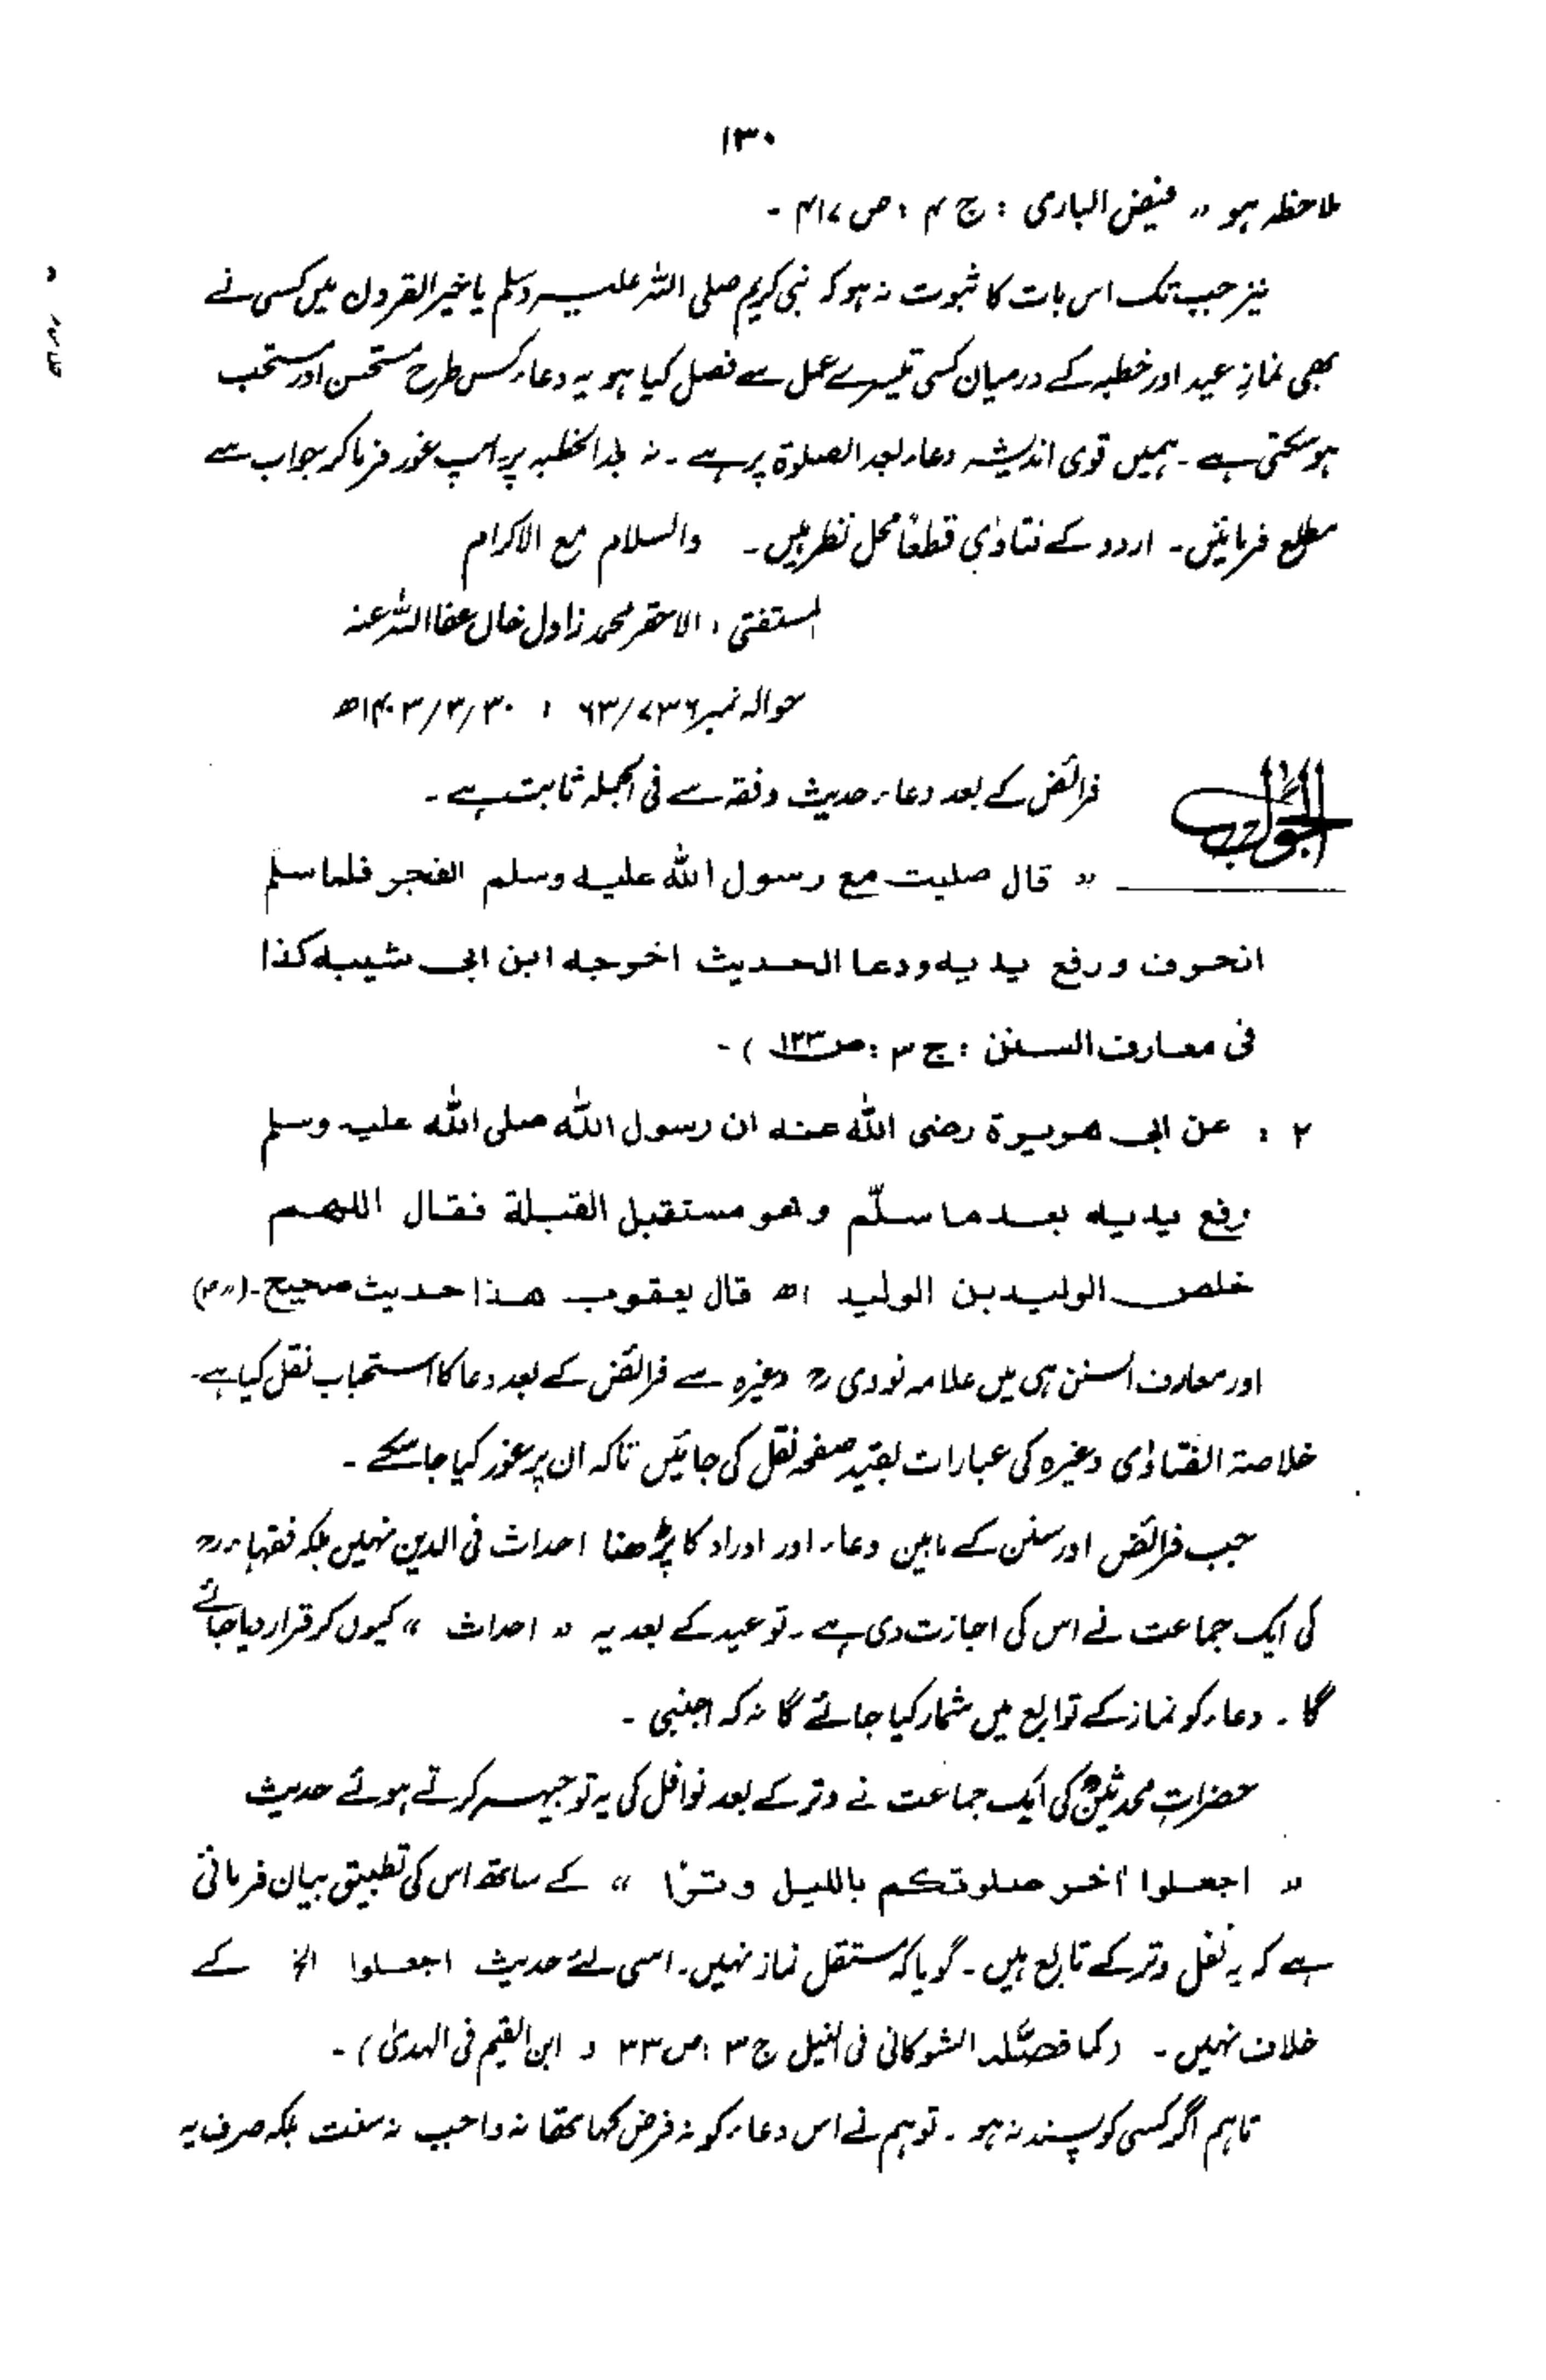 ۱۳۰
ملاحظہ ہو « فیض الباری : ج ۴ : ص ۴۱۷ ۔
نیز جب تک اس بات کا ثبوت نہ ہو کہ نبی کریم صلی اللہ علیہ وسلم یا خیر القرون میں کسی نے
بھی نمازِ عید اور خطبہ کے درمیان کسی تیسرے عمل سے فصل کیا ہو یہ دعاء کس طرح مستحسن اور مستحب
ہو سکتی ہے ۔ ہمیں قوی اندیشہ دعاء بعد الصلوٰۃ پر ہے ۔ نہ بعد الخطبہ پر آپ غور فرما کر جواب سے
مطلع فرمائیں ۔ اردو کے فتاوٰی قطعاً محل نظر ہیں ۔ والسلام مع الاکرام
المستفتی : الاحقر محمد زاول خان عفا اللہ عنہ
حوالہ نمبر ۶۳/۷۳۶ ؛ ۱۴۰۳/۳/۳۰ھ
الجواب
فرائض کے بعد دعاء حدیث و فقہ سے فی الجملہ ثابت ہے ۔
« قال صليت مع رسول الله عليه وسلم الفجر فلما سلم
انحرف ورفع يديه ودعا الحديث اخرجه ابن ابى شيبه كذا
فى معارف السنن : ج ۳ : ص ۱۲۳ ) ۔
۲ : عن ابى هريرة رضى الله عنه ان رسول الله صلى الله عليه وسلم
رفع يديه بعد ما سلّم وهو مستقبل القبلة فقال اللهم
خلص الوليد بن الوليد اھ قال يعقوب هذا حديث صحيح ۔ (۳/۱۱)
اور معارف السنن ہی میں علامہ نووی رح وغیرہ سے فرائض کے بعد دعا کا استحباب نقل کیا ہے ۔
خلاصۃ الفتاوٰی وغیرہ کی عبارات بقید صفحہ نقل کی جائیں تاکہ ان پر غور کیا جا سکے ۔
جب فرائض اور سنن کے مابین دعاء اور اوراد کا پڑھنا احداث فی الدین نہیں بلکہ فقہاء رح
کی ایک جماعت نے اس کی اجازت دی ہے ۔ تو عید کے بعد یہ « احداث » کیوں کر قرار دیا جائے
گا ۔ دعاء کو نماز کے توابع میں شمار کیا جائے گا نہ کہ اجنبی ۔
حضراتِ محدثینؒ کی ایک جماعت نے وتر کے بعد نوافل کی یہ توجیہہ کرتے ہوئے حدیث
« اجعلوا آخر صلوتكم بالليل وترًا » کے ساتھ اس کی تطبیق بیان فرمائی
ہے کہ یہ نفل وتر کے تابع ہیں ۔ گویا کہ مستقل نماز نہیں ۔ اسی لئے حدیث اجعلوا الخ کے
خلاف نہیں ۔ (کما فصّلہ الشوکانی فی النیل ج ۳ : ص ۳۳ و ابن القیم فی الہدیٰ) ۔
تاہم اگر کسی کو پسند نہ ہو ۔ تو ہم نے اس دعاء کو نہ فرض کہا تھا نہ واجب نہ سنت بلکہ صرف یہ